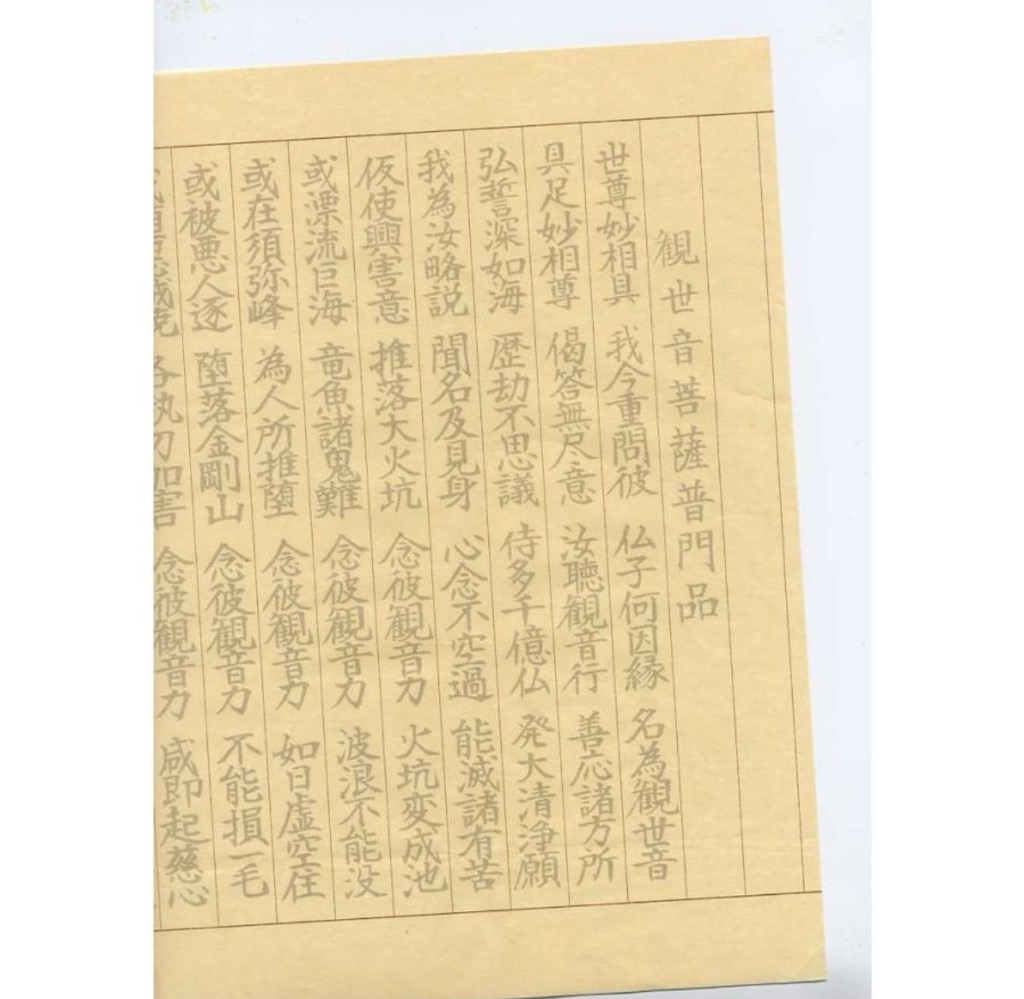 観世音菩薩普門品
世尊妙相具 我今重問彼 仏子何因縁 名為観世音
具足妙相尊 偈答無尽意 汝聴観音行 善応諸方所
弘誓深如海 歴劫不思議 侍多千億仏 発大清浄願
我為汝略説 聞名及見身 心念不空過 能滅諸有苦
仮使興害意 推落大火坑 念彼観音力 火坑変成池
或漂流巨海 竜魚諸鬼難 念彼観音力 波浪不能没
或在須弥峰 為人所推堕 念彼観音力 如日虚空住
或被悪人逐 堕落金剛山 念彼観音力 不能損一毛
執刀加害 念彼観音力 咸即起慈心